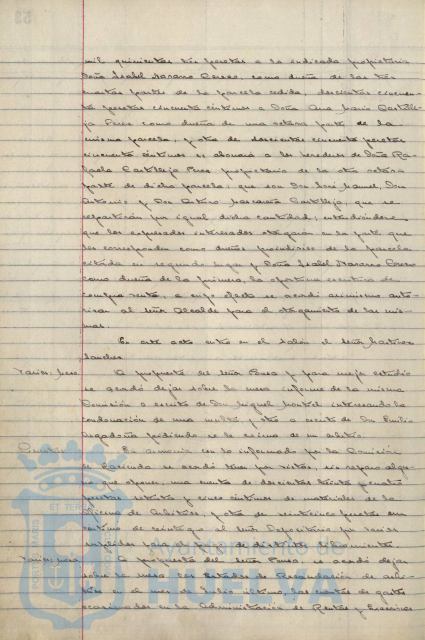 mil quinientas tres pesetas a la indicada propietaria
Doña Isabel Navarro Cerezo, como dueña de las tres
cuartas partes de la parcela cedida, doscientas cincuen-
ta pesetas cincuenta céntimos a Doña Ana María Castille-
ja Perez como dueña de una octava parte de la
misma parcela, y otra de doscientas cincuenta pesetas
cincuenta céntimos se abonará a los herederos de Doña Ra-
faela Castilleja Perez propietaria de la otra octava
parte de dicha parcela; que son Don José Manuel, Don
Antonio y Don Arturo Castilleja, que se
repartirán por igual dicha cantidad; entendiéndose
que los expresados interesados otorgarán en la parte que
les corresponda como dueños proindiviso de la parcela
citada en segundo lugar y Doña Isabel Navarro Cerezo
como dueña de la primera, la oportuna escritura de
compra venta, a cuyo efecto se acordó asimismo auto-
rizar al Señor Alcalde para el otorgamiento de las mis-
mas.
En este acto entró en el salón el Señor
Sanchez.
A propuesta del Señor y para mejor estudio
se acordó dejar sobre la mesa informe de la misma
Comisión a escrito de Don Miguel interesando la
condonación de una multa, y otro a escrito de Don Emilio
pidiendo se le exima de un arbitrio.
En armonía con lo informado por la Comisión
de Hacienda se acordó tener por vistas, sin reparo algu-
no que oponer, una cuenta de doscientas treinta y cuatro
pesetas setenta y cinco céntimos de materiales de la
Oficina de Arbitrios, y otra de veinticinco pesetas un
céntimo de reintegro al Señor Depositario por varios
suplidos para de distintos documentos.
A propuesta del Señor se acordó dejar
sobre la mesa los Estados de Recaudación de arbi-
trios en el mes de Julio último, las cuentas de gastos
ocasionados en la Administración de Rentas y Exacciones
ET TERRAE
Ayuntamiento de
HUELVA